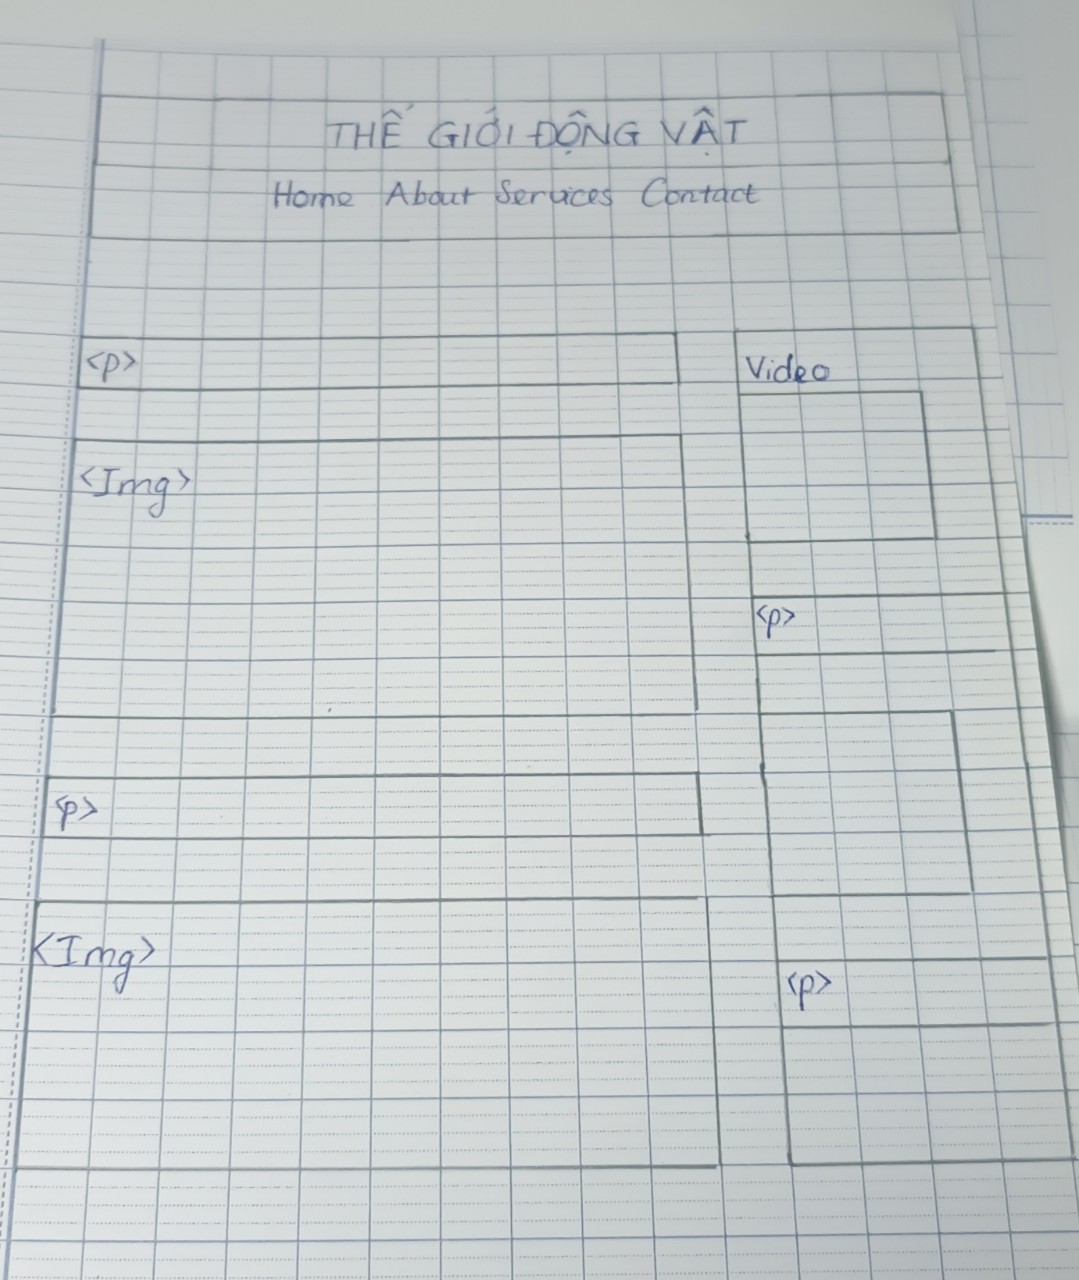 THẾ GIỚI ĐỘNG VẬT
Home About Services Contact
<p>
<Img>
<p>
<Img>
Video
<p>
<p>